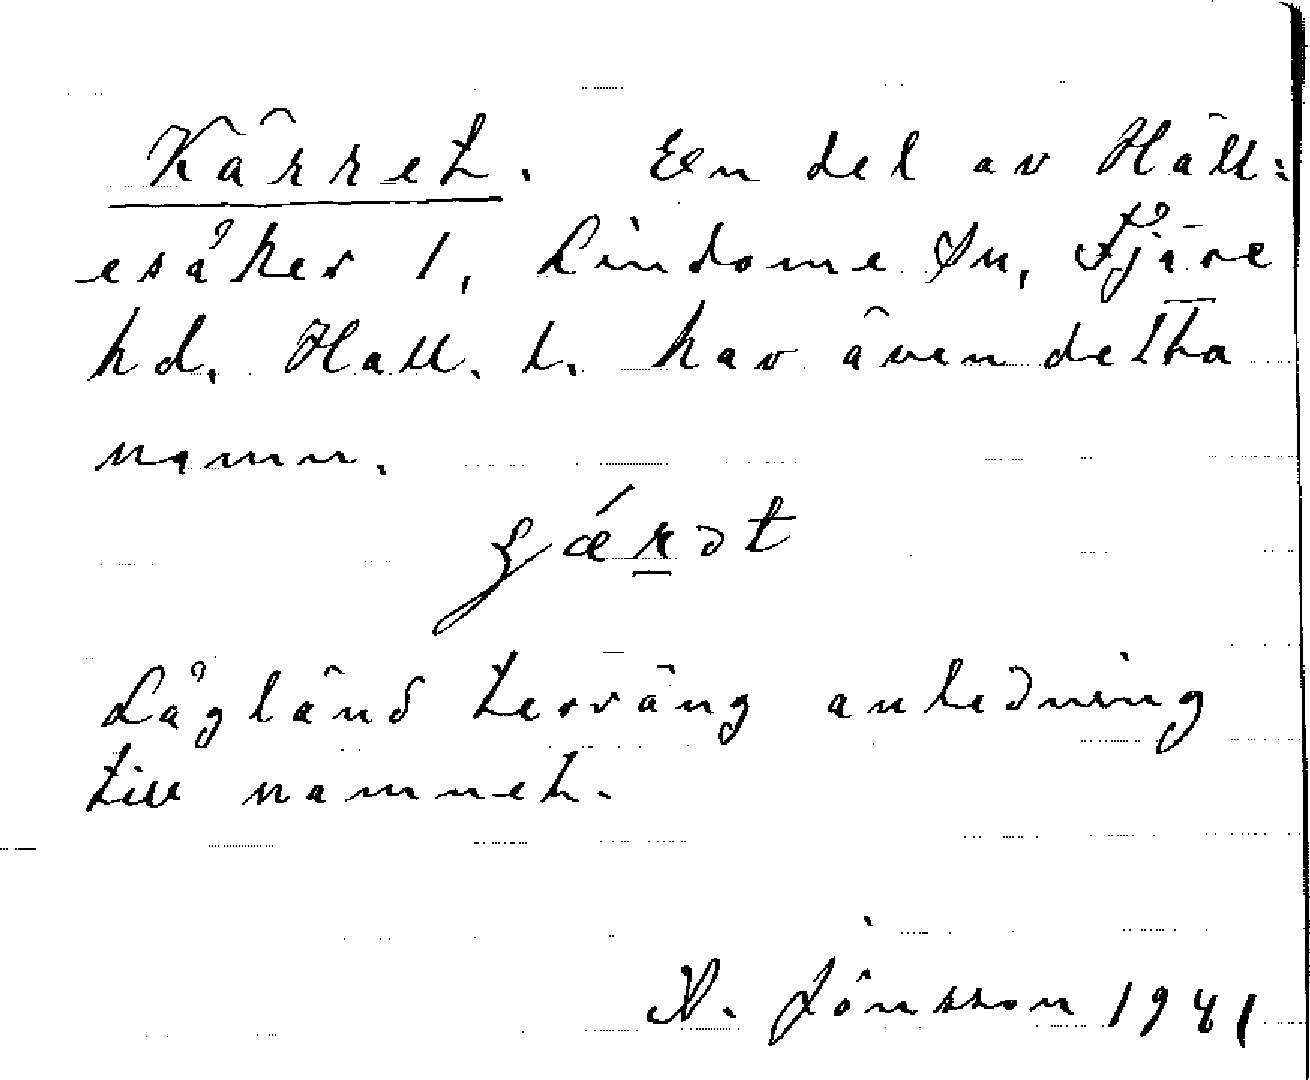 Kärret. En del av Häll-
esåker 1, Lindome sn, Fjäre
hd. Hall. l. har även detta
namn.
ʂǽrət
Lågländ terräng anledning
till namnet.
N. Jönsson 1941